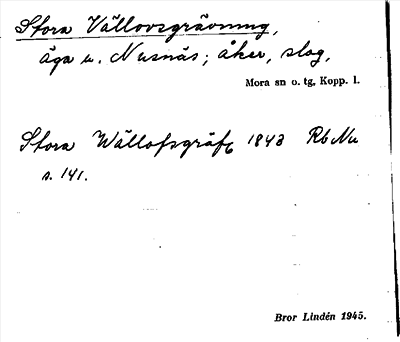 Stora Vällovsgrävning,
äga u. Nusnäs; åker, slog,
Mora sn o. tg, Kopp. l.
Stora Wällofsgräfg 1843 Rb Nu
s. 141.
Bror Lindén 1945.